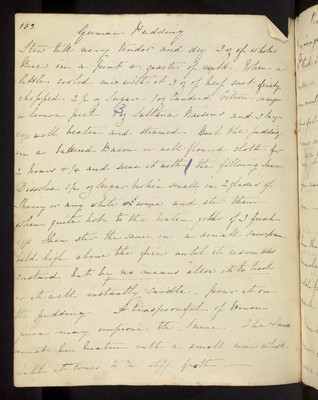 132
German Pudding
Stew till very tender and dry 3 oz of whole
Rice in a Pint & a quarter of milk. When a
little cooled mix with it 3 oz of beef suet finely
chopped 2 1/2 oz Sugar 1 oz Candied Citron
or lemon peel 3 oz Sultana Raisins and 3 large
eggs well beaten and strained. Boil the pudding
in a buttered Bason or well floured cloth for
2 hours & 1/4 and serve it with the following sauce
Dissolve 1 1/2 oz Sugar broken small in 2 glasses of
Sherry or any white wine and stir them
when quite hot to the beaten yolks of 3 fresh
eggs Then stir the sauce in a small saucepan
held high above the fire until it resembles
custard but by no means allow it to boil
or it will instantly curdle. Pour it over
the pudding A teaspoonful of lemon
juice may improve the sauce. The Sauce
must be beaten with a small whisk
until it comes to a stiff froth